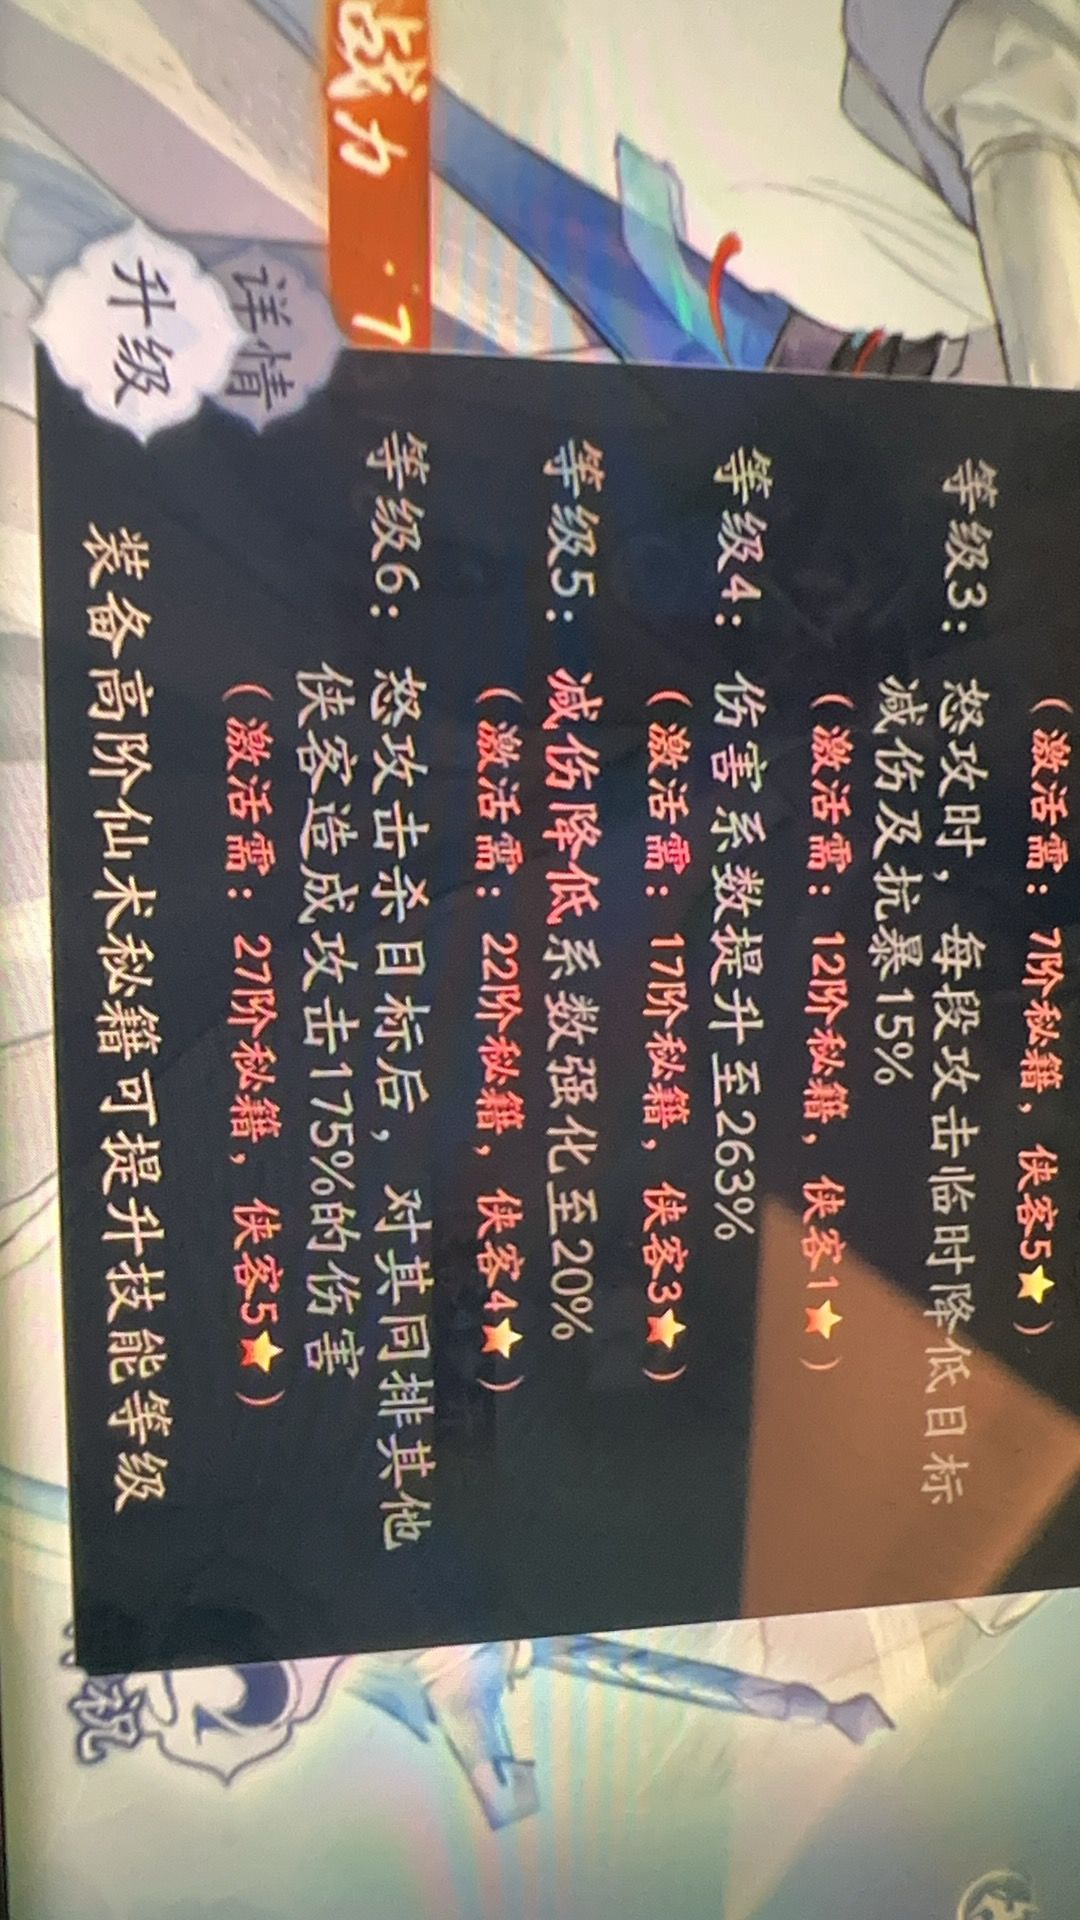 战力
详情
升级
（激活需：7阶秘籍，侠客5⭐）
等级3：怒攻时，每段攻击临时降低目标
减伤及抗暴15%
（激活需：12阶秘籍，侠客1⭐）
等级4：伤害系数提升至263%
（激活需：17阶秘籍，侠客3⭐）
等级5：减伤降低系数强化至20%
（激活需：22阶秘籍，侠客4⭐）
等级6：怒攻击杀目标后，对其同排其他
侠客造成攻击175%的伤害
（激活需：27阶秘籍，侠客5⭐）
装备高阶仙术秘籍可提升技能等级